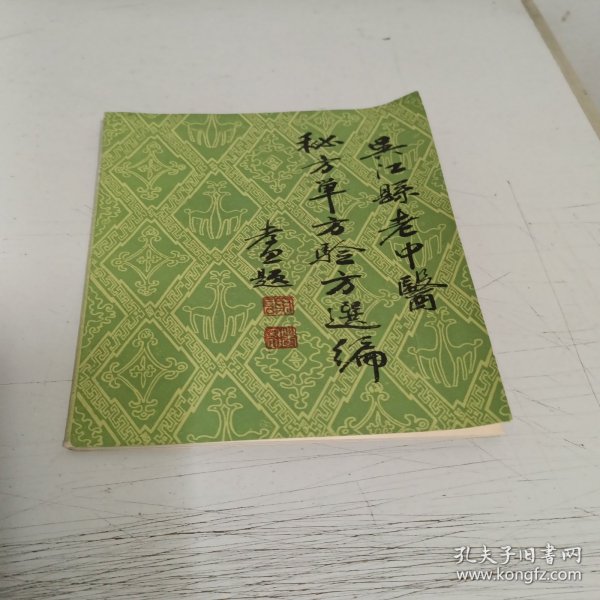 吴江縣老中醫
秘方單方驗方選編
題
孔夫子旧書网
www.kongfz.com